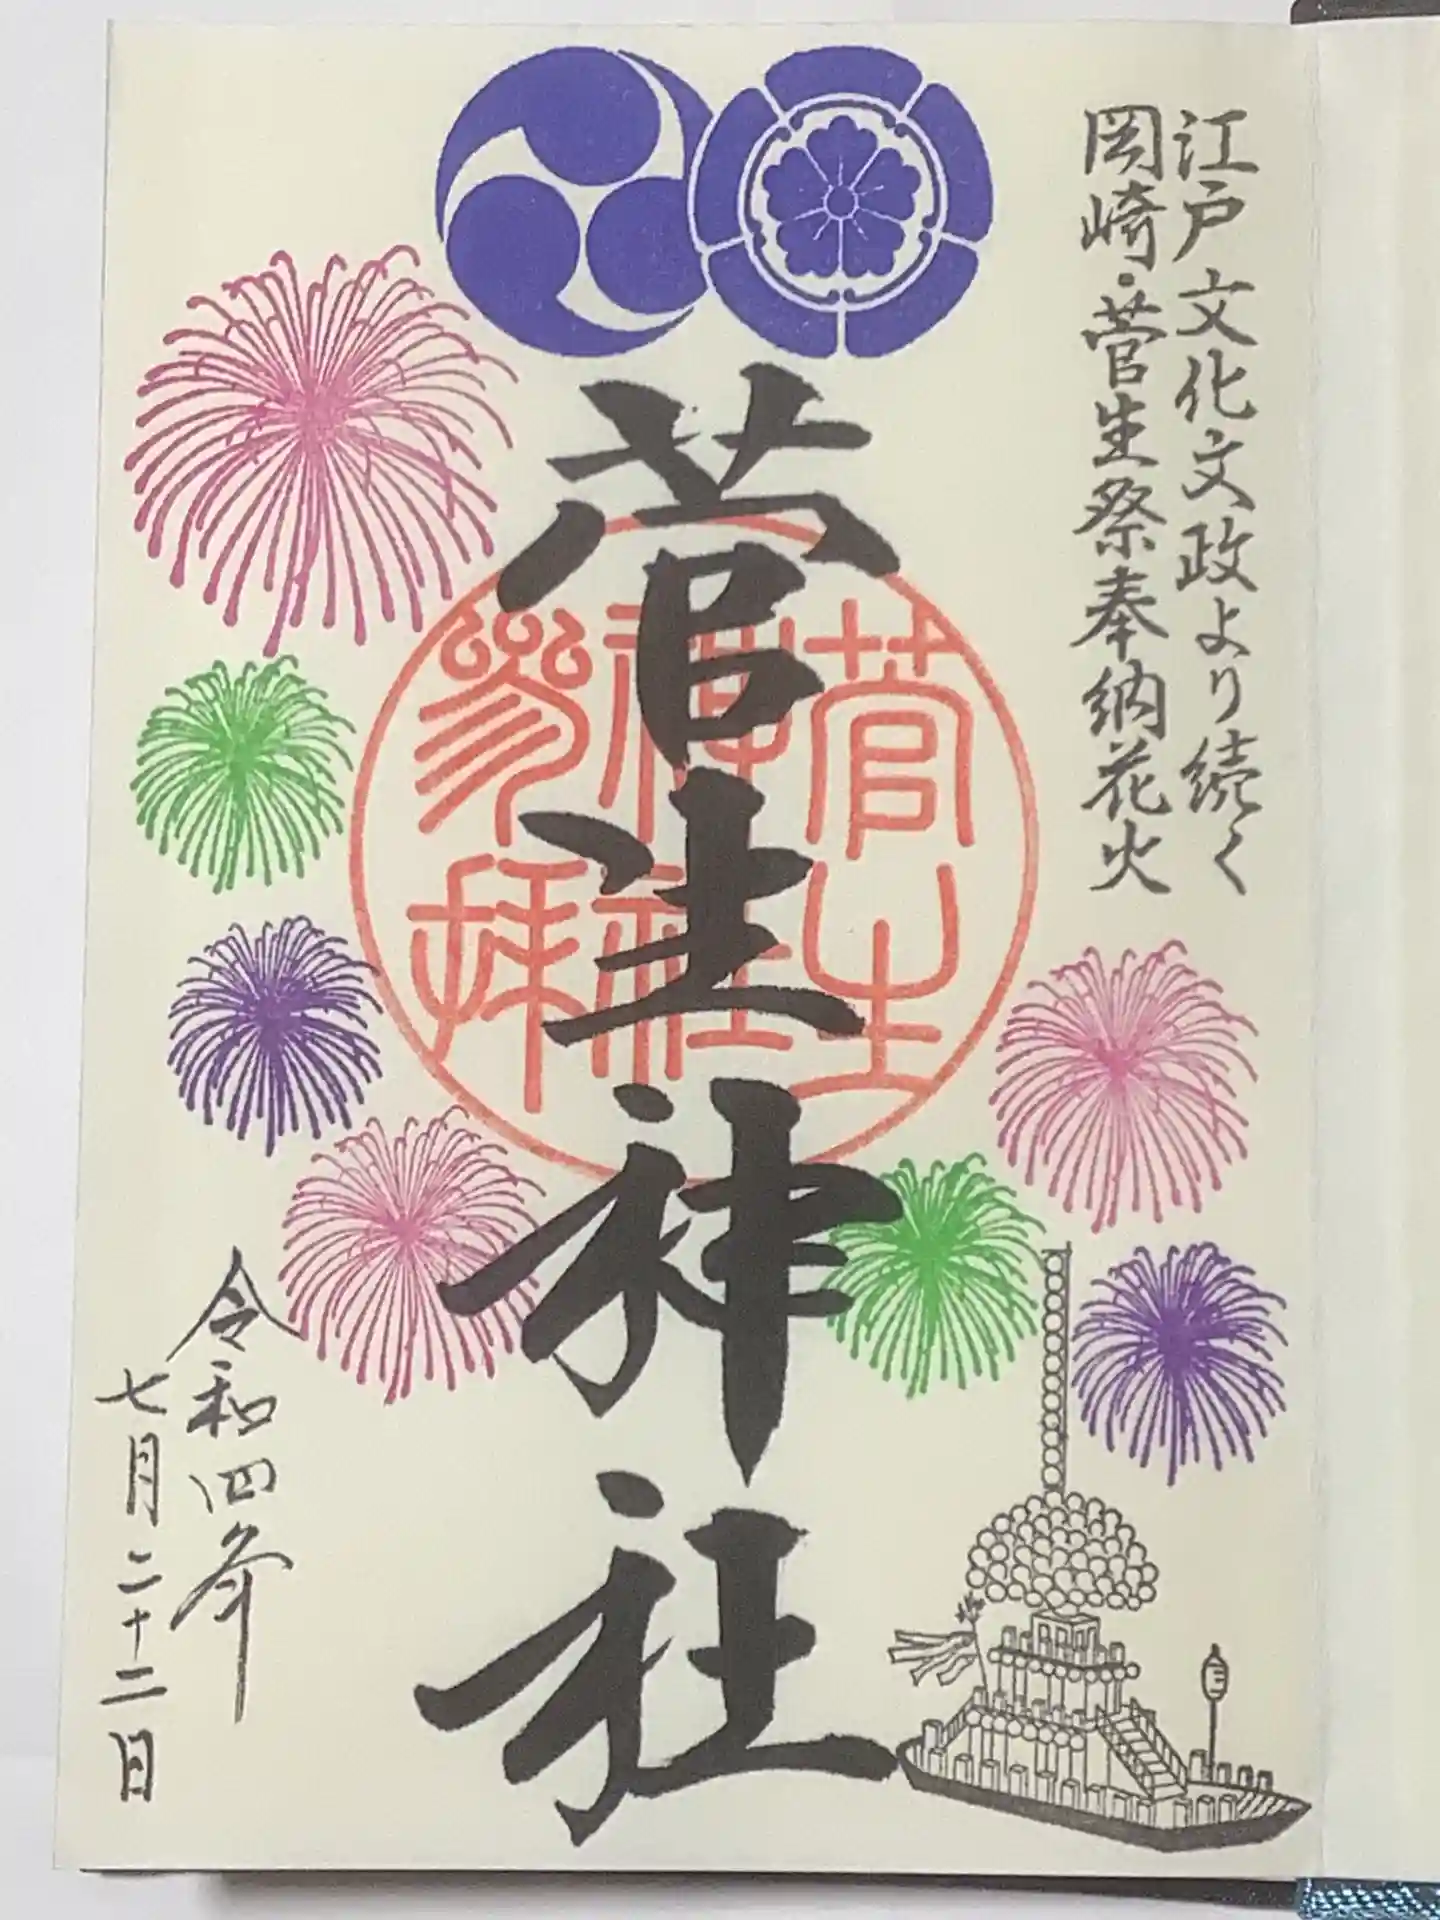 江戸文化文政より続く
岡崎・菅生祭奉納花火
菅生神社
菅生
神社
参拝
令和四年
七月二十二日